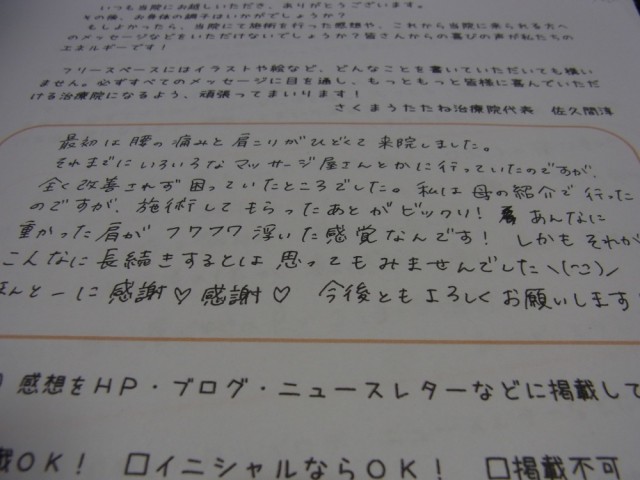 いつも当院にお越しいただき、ありがとうございます。
その後、お身体の調子はいかがでしょうか？
もしよかったら、当院にて施術を行った感想や、これから当院に来られる方へ
のメッセージなどをいただけないでしょうか？皆さんからの喜びの声が私たちの
エネルギーです！
フリースペースにはイラストや絵など、どんなことを書いていただいても構い
ません。必ずすべてのメッセージに目を通し、もっともっと皆様に喜んでいただ
ける治療院になるよう、頑張ってまいります！
さくまうたたね治療院代表　佐久間淳
最初は腰の痛みと肩こりがひどくて来院しました。
それまでにいろいろなマッサージ屋さんとかに行っていたのですが、
全く改善されず困っていたところでした。私は母の紹介で行った
のですが、施術してもらったあとがビックリ！あんなに
重かった肩がフワフワ浮いた感覚なんです！しかもそれが
こんなに長続きするとは思ってもみませんでした＼(^^)／
ほんとーに感謝♡感謝♡　今後ともよろしくお願いします
感想をHP・ブログ・ニュースレターなどに掲載して
載OK！　□イニシャルならOK！　□掲載不可